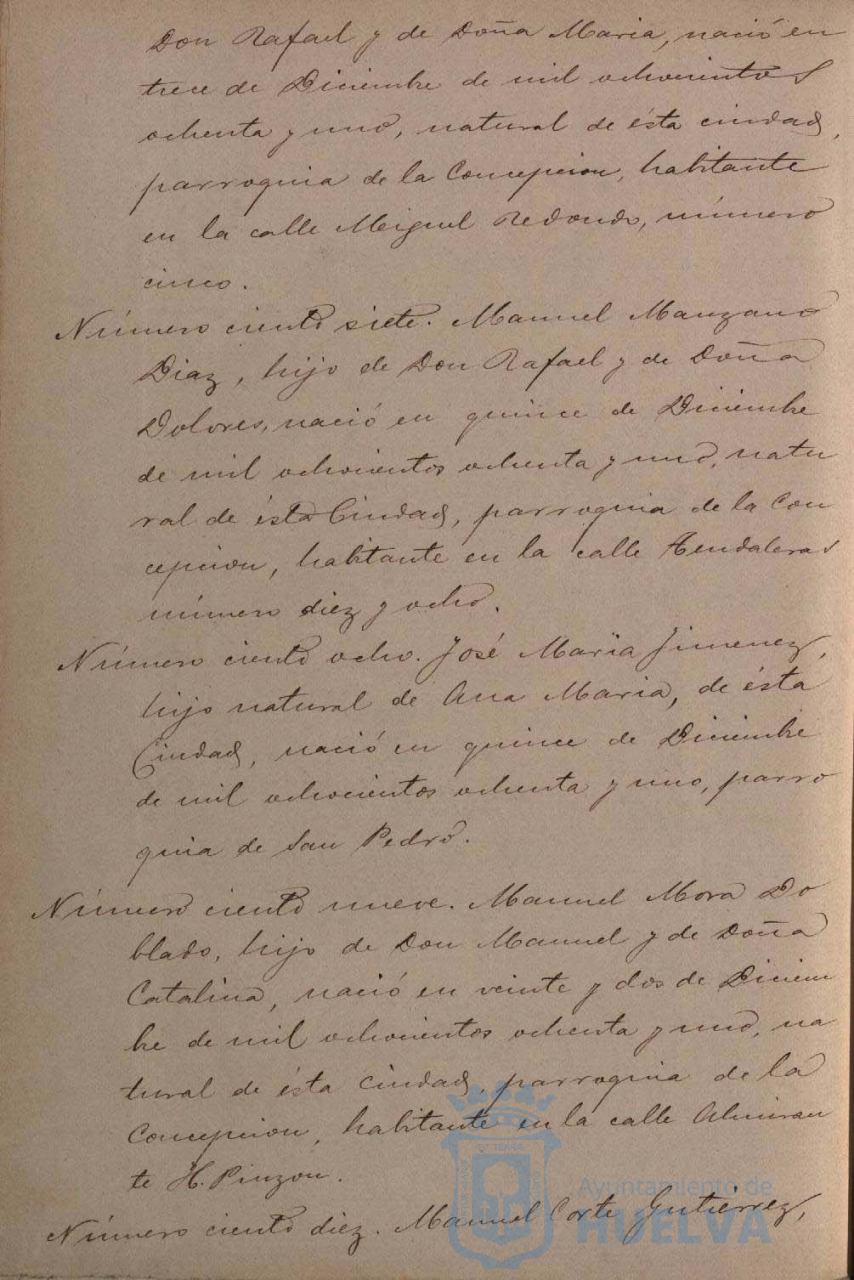 Don Rafael y de Doña Maria, nació en
trece de Diciembre de mil ochocientos
ochenta y uno, natural de ésta ciudad,
parroquia de la Concepcion, habitante
en la calle Miguel Redondo, número
cinco.
Número ciento siete. Manuel Manzano
Diaz, hijo de Don Rafael y de Doña
Dolores, nació en quince de Diciembre
de mil ochocientos ochenta y uno, natu
ral de ésta Ciudad, parroquia de la Con
cepcion, habitante en la calle Tendaleras
número diez y ocho.
Número ciento ocho. José Maria Jimenez,
hijo natural de Ana Maria, de ésta
Ciudad, nació en quince de Diciembre
de mil ochocientos ochenta y uno, parro
quia de San Pedro.
Número ciento nueve. Manuel Mora Do
blado, hijo de Don Manuel y de Doña
Catalina, nació en veinte y dos de Diciem
bre de mil ochocientos ochenta y uno, na
tural de ésta Ciudad, parroquia de la
Concepcion, habitante en la calle Almiran
te H. Pinzon.
Número ciento diez. Manuel Corte Gutierrez,
Ayuntamiento de
HUELVA